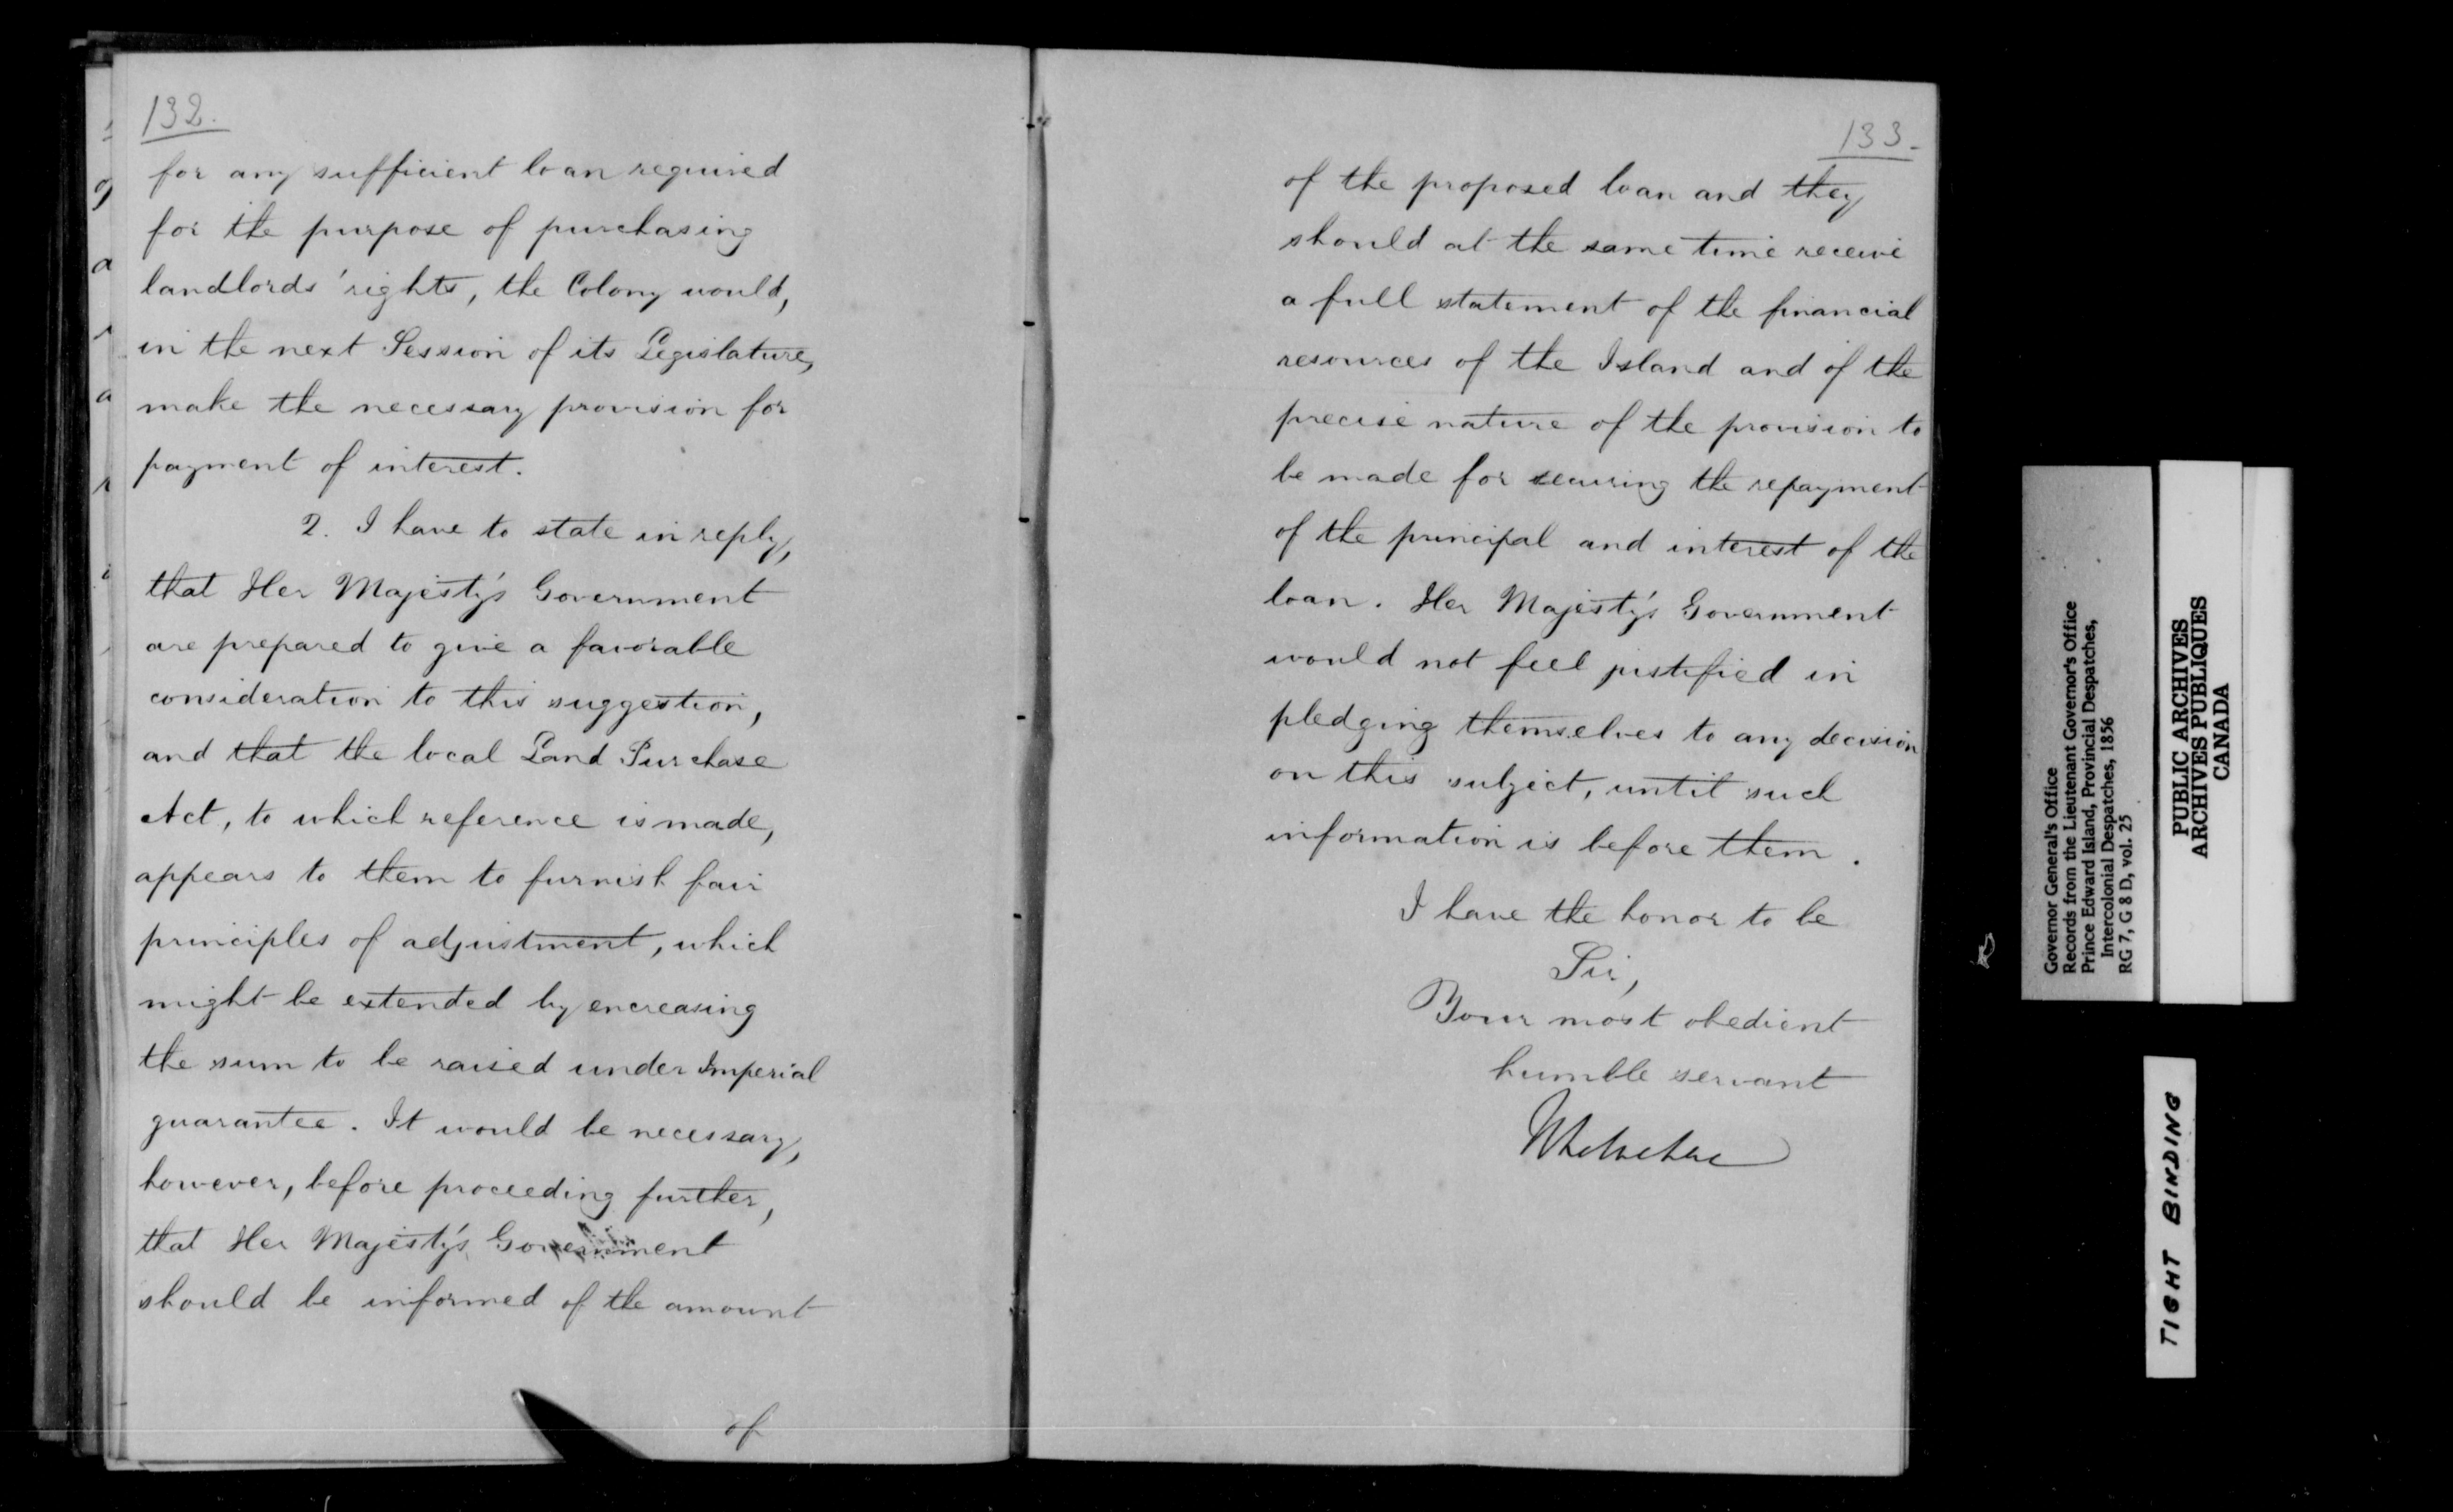 132.
for any sufficient loan required
for the purpose of purchasing
landlords' rights, the Colony would,
in the next Session of its Legislature,
make the necessary provision for
payment of interest.
2. I have to state in reply,
that Her Majesty's Government
are prepared to give a favorable
consideration to this suggestion,
and that the local Land Purchase
Act, to which reference is made,
appears to them to furnish fair
principles of adjustment, which
might be extended by encreasing
the sum to be raised under Imperial
guarantee. It would be necessary,
however, before proceeding further,
that Her Majesty's Government
should be informed of the amount
of
133.
of the proposed loan and they
should at the same time receive
a full statement of the financial
resources of the Island and of the
precise nature of the provision to
be made for securing the repayment
of the principal and interest of the
loan. Her Majesty's Government
would not feel justified in
pledging themselves to any decision
on this subject, until such
information is before them.
I have the honor to be
Sir,
Your most obedient
humble servant
Governor General's Office
Records from the Lieutenant Governor's Office
Prince Edward Island, Provincial Despatches,
Intercolonial Despatches, 1856
RG 7, G 8 D, vol. 25
PUBLIC ARCHIVES
ARCHIVES PUBLIQUES
CANADA
TIGHT BINDING